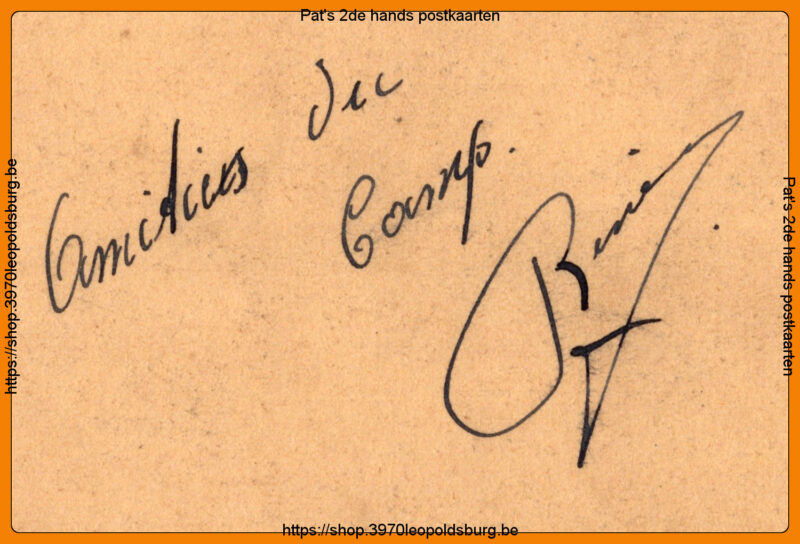 Pat's 2de hands postkaarten
Amitiés du
Camp.
https://shop.3970leopoldsburg.be
Pat's 2de hands postkaarten
https://shop.3970leopoldsburg.be